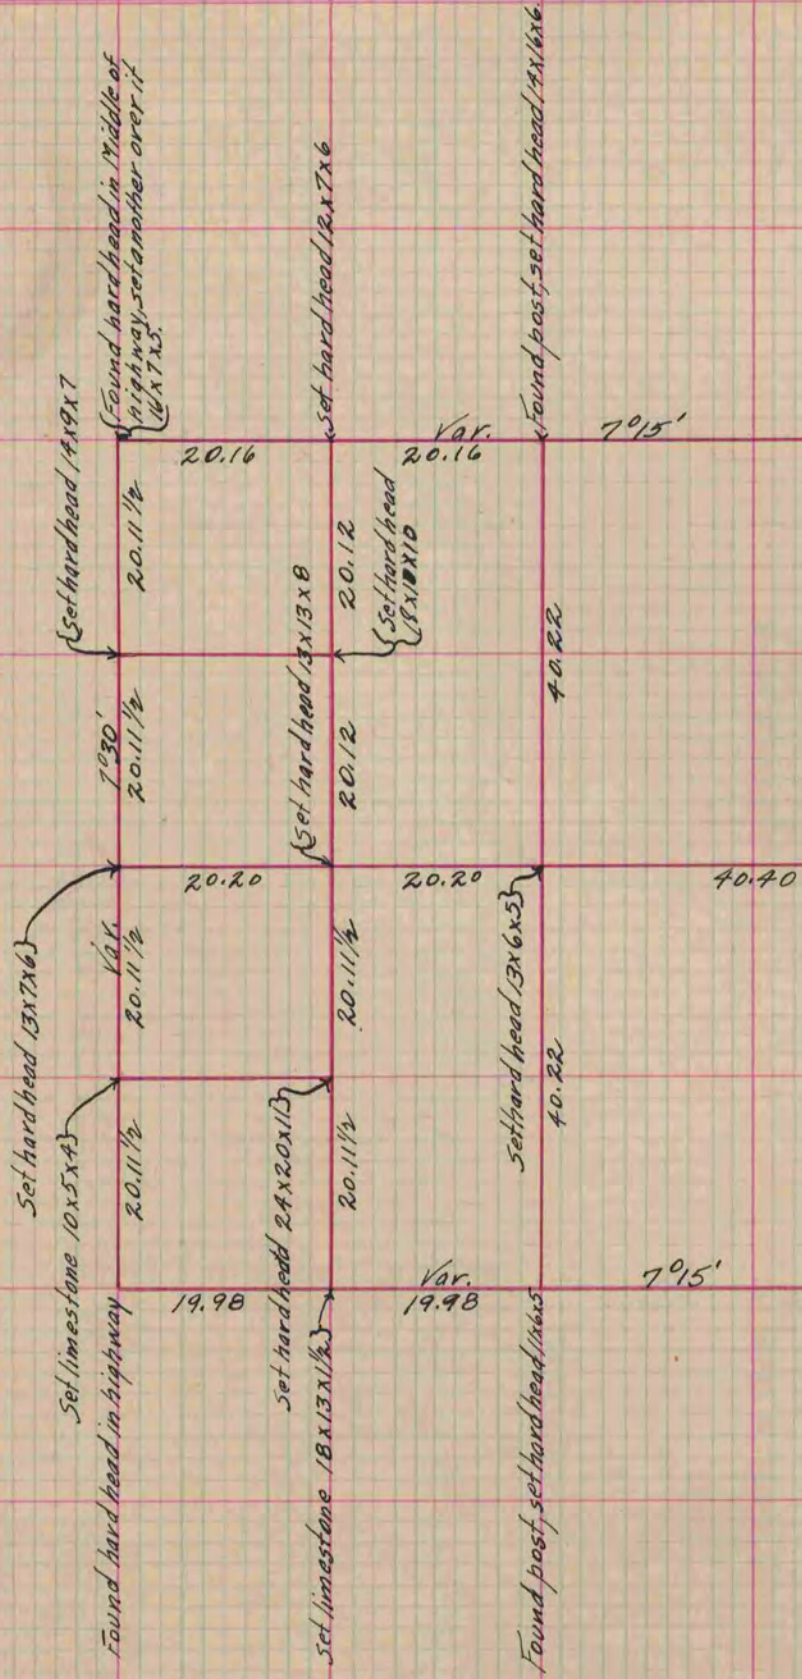 Found hard head in Middle of
highway, set another over it
16x7x5.
Set hard head 12x7x6
Found post, set hard head 14x16x6.
Set hard head 14x9x7
20.16
Var.
20.16
7°15'
20.11 1/2
20.12
Set hard head
18x18x10
Set hard head 13x13x8
40.22
7°30'
20.11 1/2
20.12
20.20
20.20
40.40
Set hard head 13x7x6
Var.
20.11 1/2
20.11 1/2
Set hard head 13x6x5
40.22
Set limestone 10x5x4
20.11 1/2
Set hard head 24x20x11
20.11 1/2
19.98
Var.
19.98
7°15'
Found hard head in highway
Set limestone 18x13x1 1/2
Found post, set hard head 11x6x5